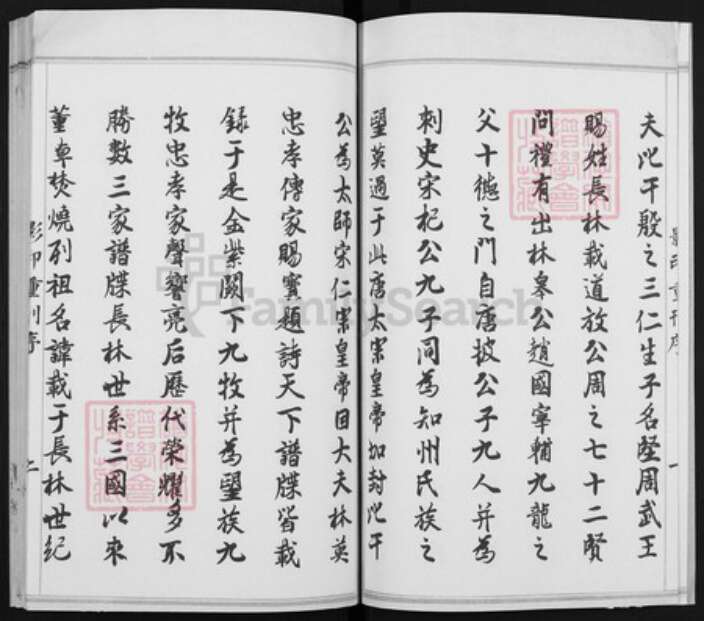 夫比干殷之三仁生子名堅周武王
賜姓長林載道放公周之七十二賢
問禮有出林皋公趙國寧輔九龍之
父十德之門自唐披公子九人并為
刺史宋杞公九子同為知州氏族之
望莫過于此唐太宗皇帝加封比干
公為太師宋仁宗皇帝因大夫林英
忠孝傳家賜寶題詩天下譜牒皆載
錄于是金紫闕下九牧并為望族九
牧忠孝家聲響亮后歷代榮耀多不
勝數三家譜牒長林世系三國以來
董卓焚燒列祖名諱載于長林世紀
影印重刊序
一
影印重刊序
二
FamilySearch